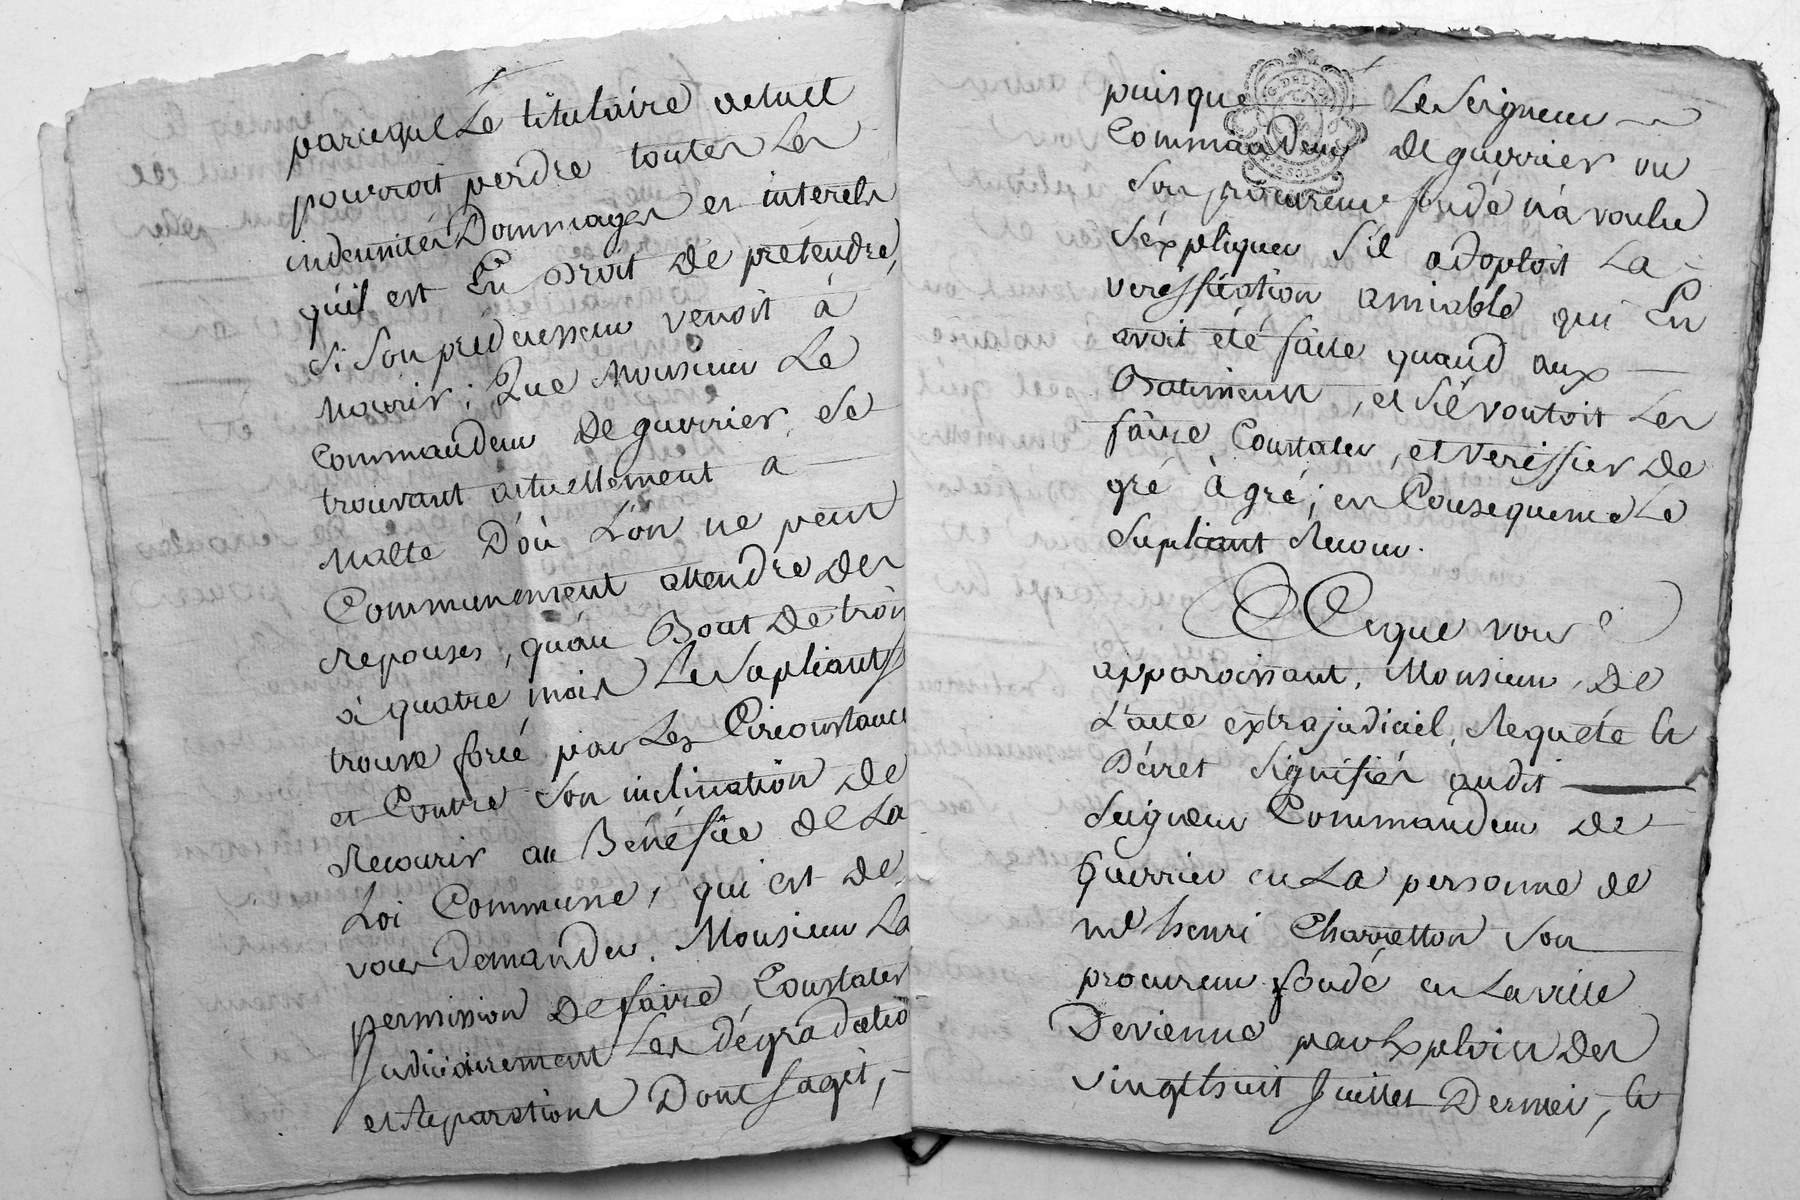 parceque Le titulaire actuel
pourroit perdre toutes Les
indemnités Dommages et interets
qu'il est En Droit De pretendre,
si Son predecesseur venoit à
mourir; Que Monsieur Le
Commandeur De guerrier, se
trouvant actuellement a
Malte D'où L'on ne peut
Communement attendre des
reponses, qu'au Bout De trois
à quatre mois Le Supliant se
trouve forcé par Les Circonstances
et Contre Son inclination De
Recourir au Bénéfice de La
Loi Commune, qui est de
vous demander, Monsieur La
permission De faire Constater
Judiciairement Les dégradatio
et reparations Dont s'agit,
puisque Le Seigneur
Commandeur De guerrier ou
Son procureur fondé n'a voulu
S'expliquer S'il adoptoit La
veriffication amiable qui En
avoit été faite quand aux
Batiments, et S'il vouloit Les
faire Constater, et veriffier De
gré à gré; en Consequence Le
Supliant Recour.
Ce que vous
apparoissant, Monsieur, De
L'acte extrajudiciel, Requete et
Décret Signifiés audit
Seigneur Commandeur De
Guerrier en La personne de
Me henri Charretton Son
procureur fondé en La ville
De vienne par Exploit des
vingt huit Juillet Dernier, et